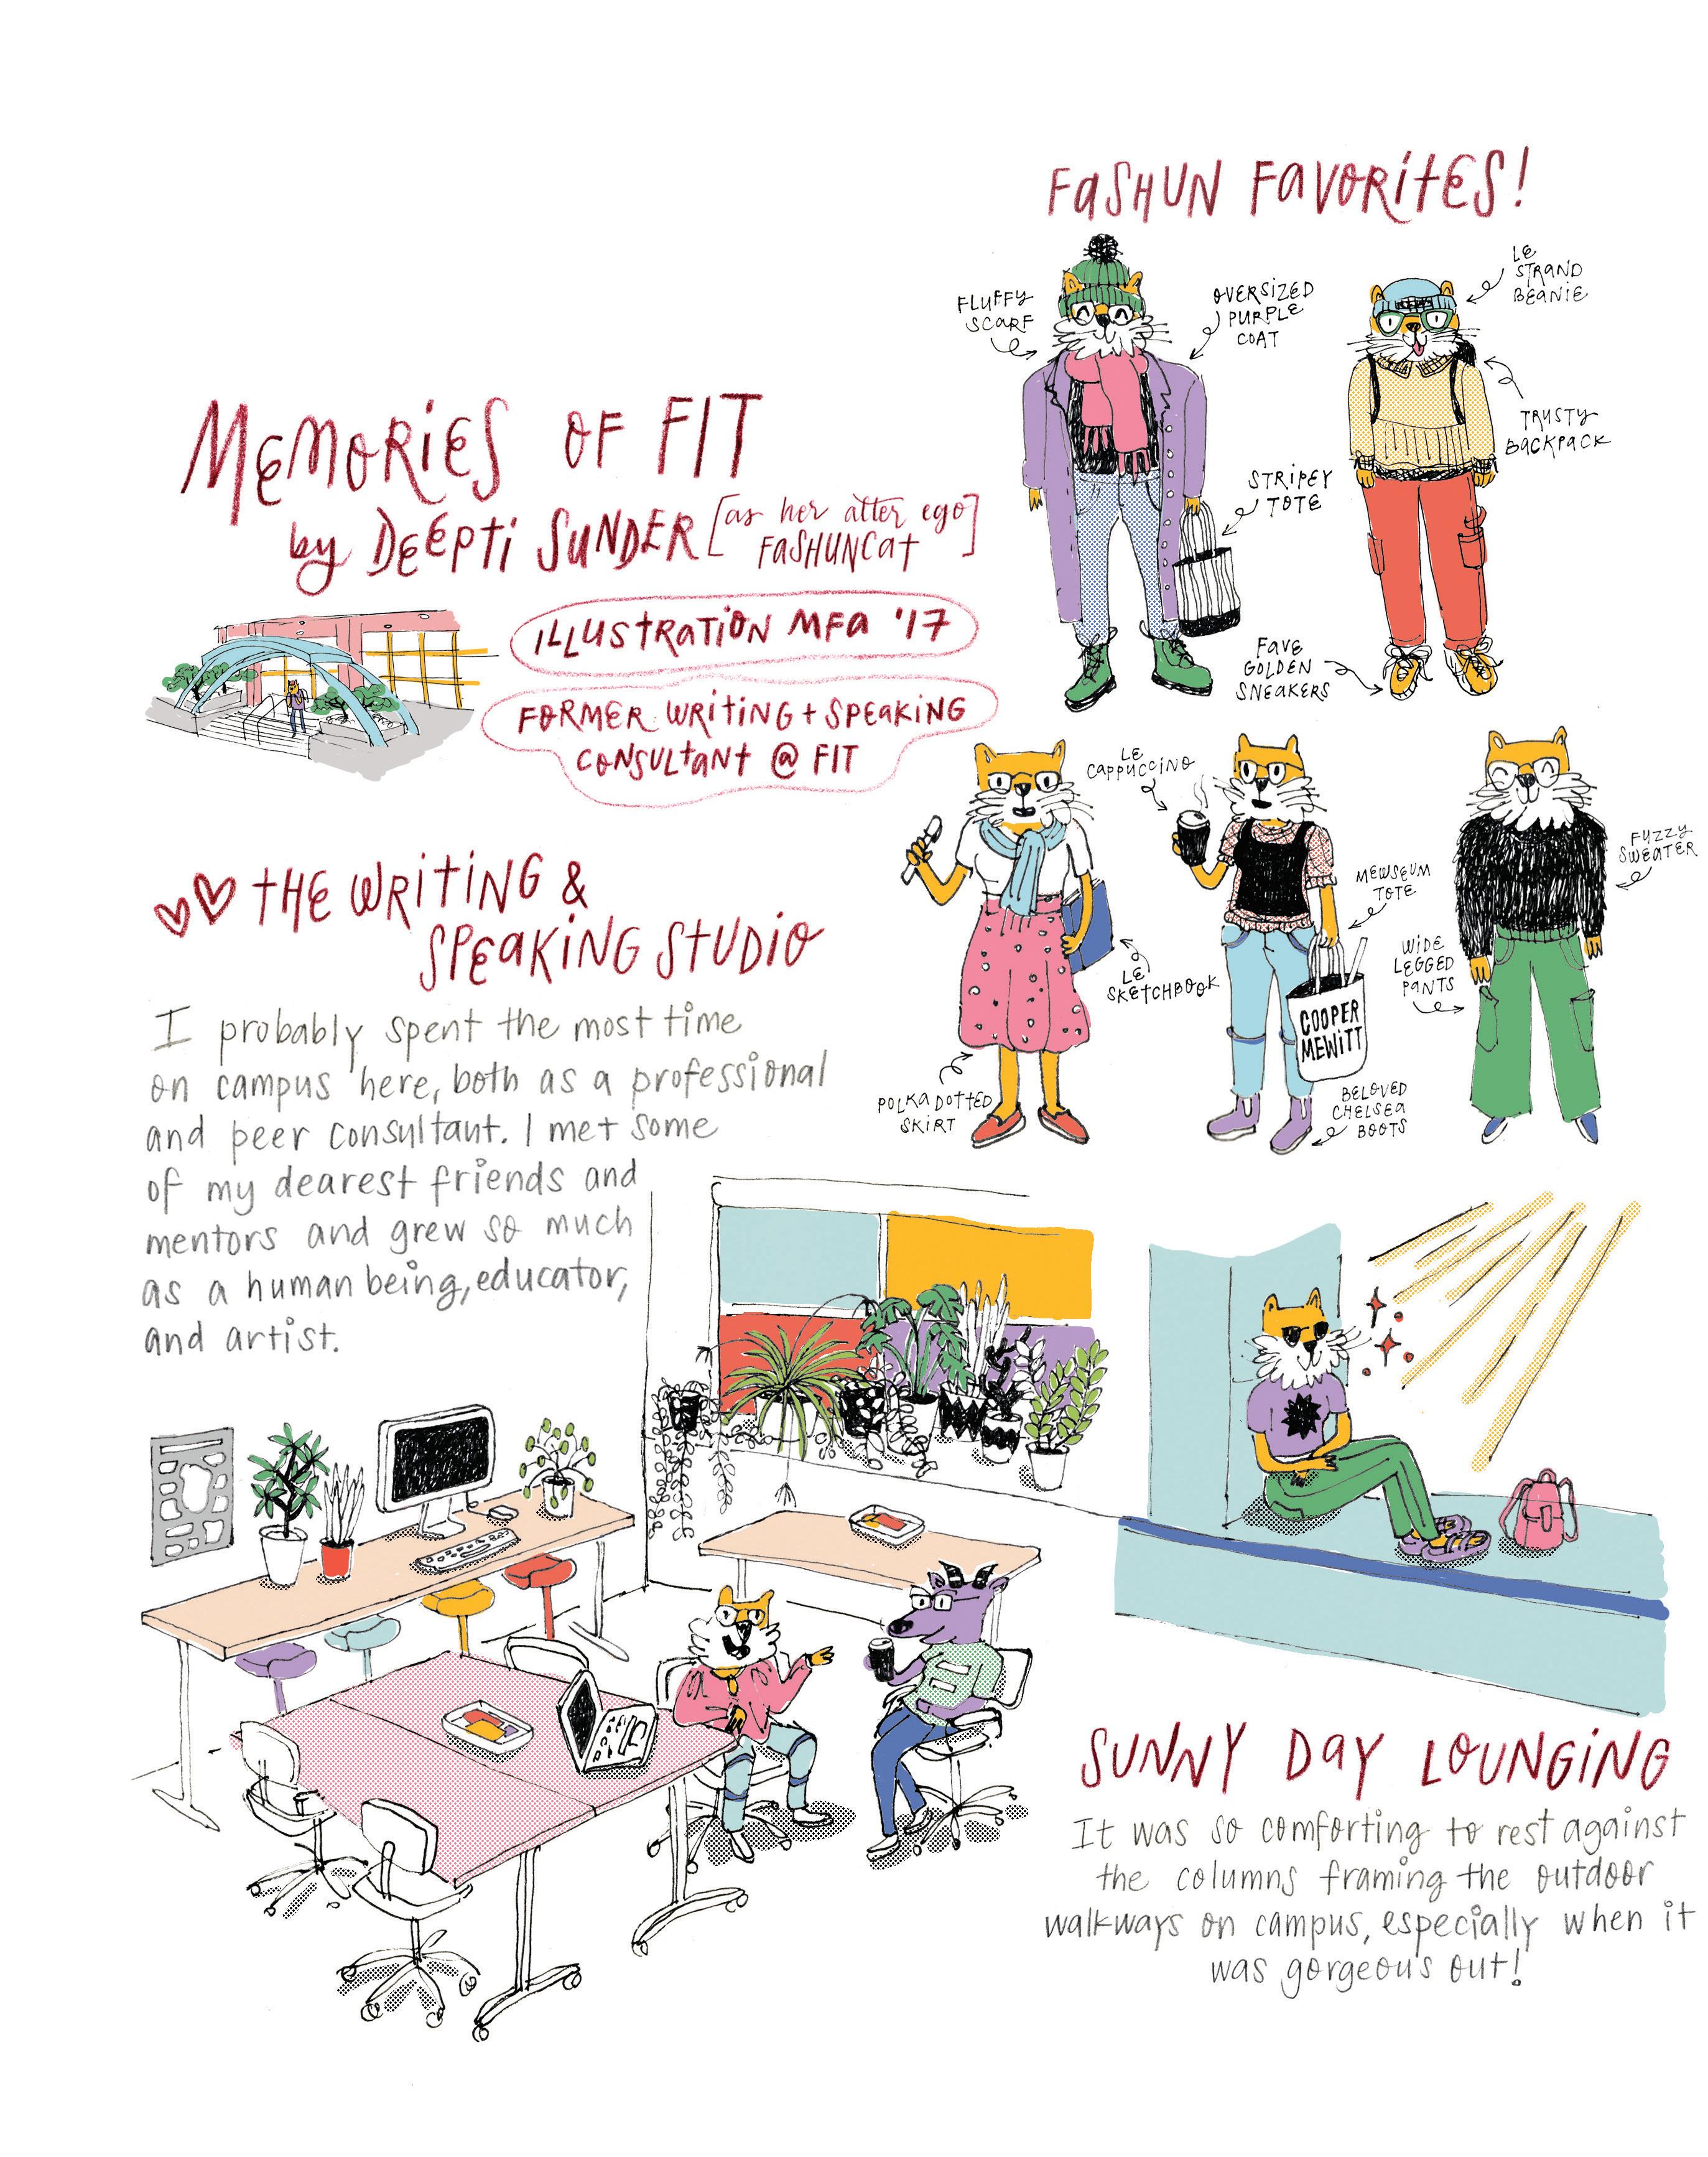 MEMORIES OF FIT
by DEEPTI SUNDER [as her alter ego]
FASHUNCAT
ILLUSTRATION MFA '17
FORMER WRITING + SPEAKING
CONSULTANT @ FIT
FASHUN FAVORITES!
FLUFFY
SCARF
OVERSIZED
PURPLE
COAT
LE
STRAND
BEANIE
TRUSTY
BACKPACK
STRIPEY
TOTE
FAVE
GOLDEN
SNEAKERS
LE
CAPPUCCINO
MEWSEUM
TOTE
FUZZY
SWEATER
WIDE
LEGGED
PANTS
LE
SKETCHBOOK
COOPER
MEWITT
POLKA DOTTED
SKIRT
BELOVED
CHELSEA
BOOTS
THE WRITING &
SPEAKING STUDIO
I probably spent the most time
on campus here, both as a professional
and peer consultant. I met some
of my dearest friends and
mentors and grew so much
as a human being, educator,
and artist.
SUNNY DAY LOUNGING
It was so comforting to rest against
the columns framing the outdoor
walkways on campus, especially when it
was gorgeous out!